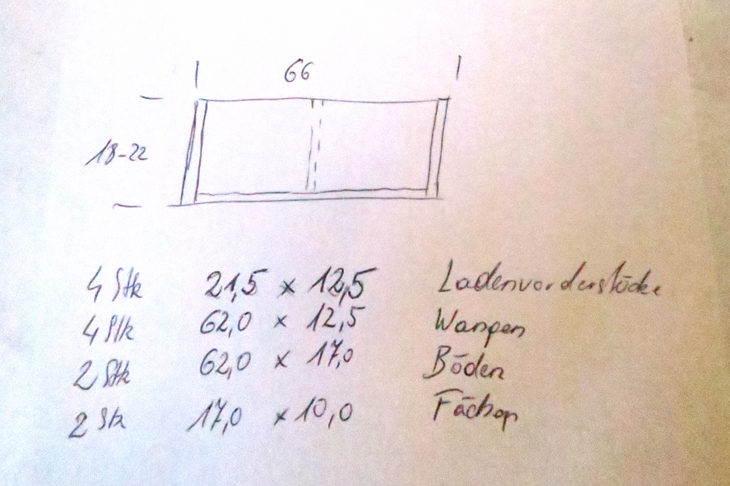 66
18-22
4 Stk 21,5 x 12,5 Ladenvorderstücke
4 Stk 62,0 x 12,5 Wangen
2 Stk 62,0 x 17,0 Böden
2 Stk 17,0 x 10,0